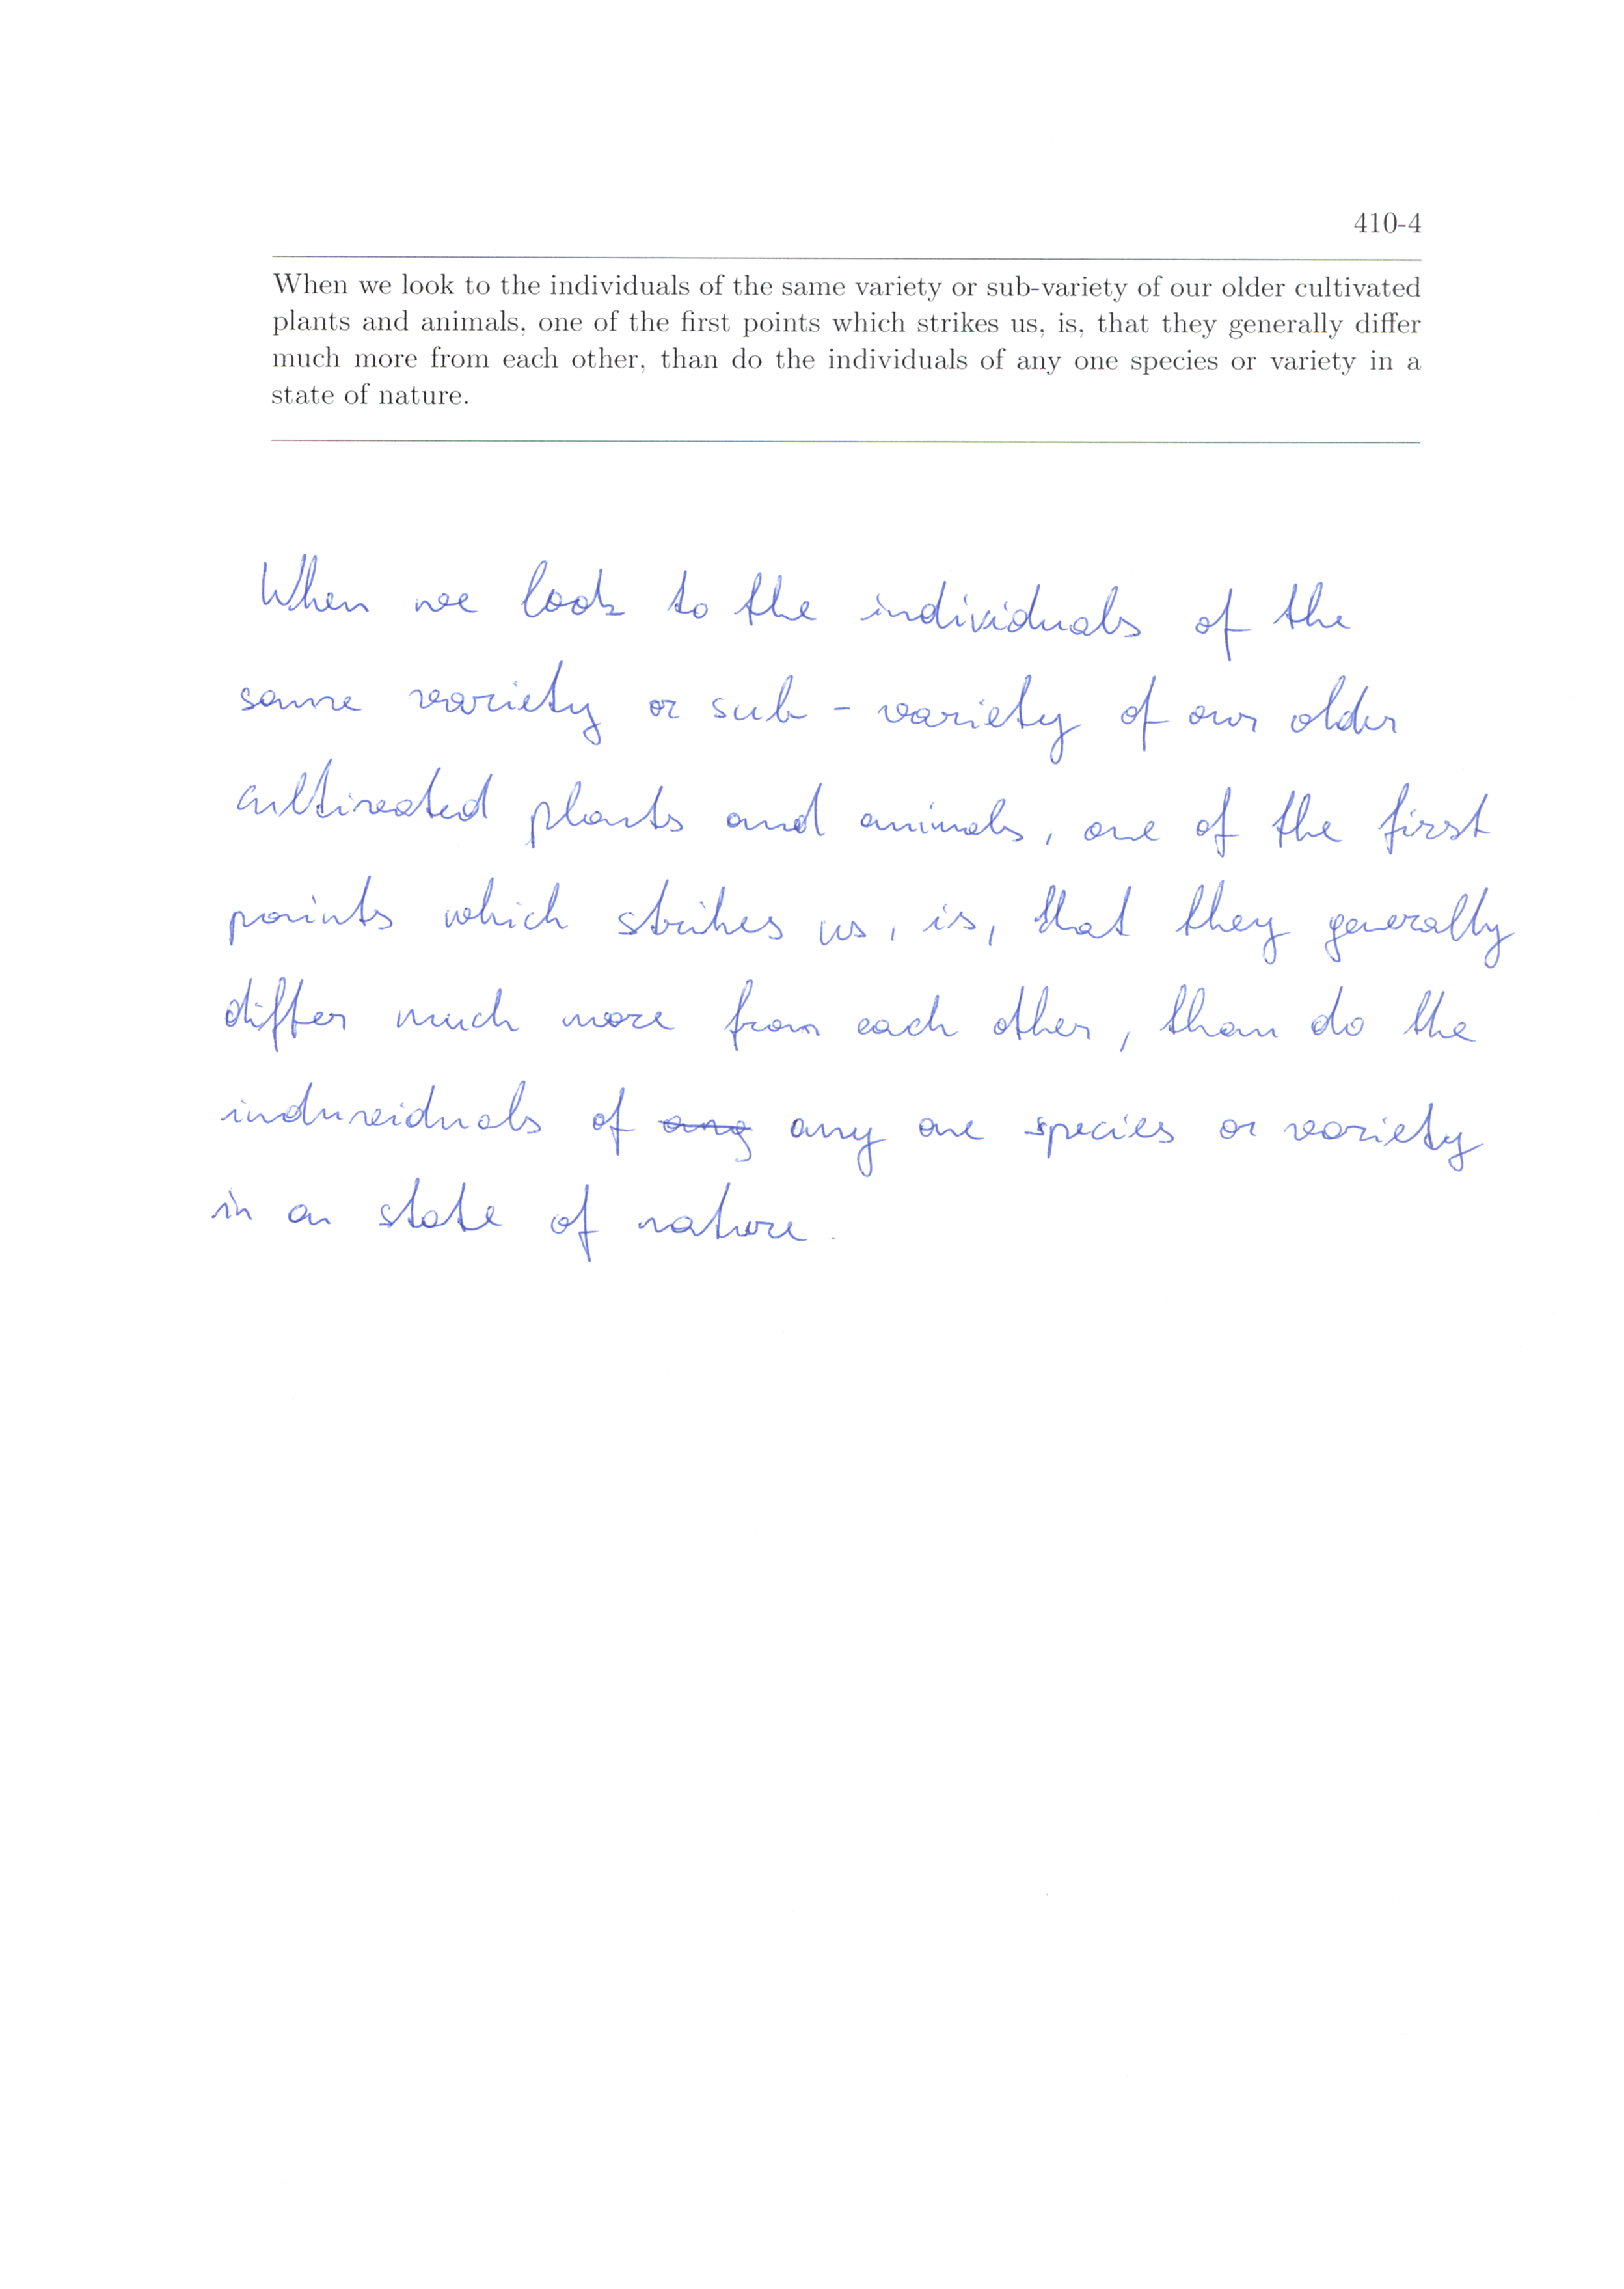 410-4
When we look to the individuals of the same variety or sub-variety of our older cultivated
plants and animals, one of the first points which strikes us, is, that they generally differ
much more from each other, than do the individuals of any one species or variety in a
state of nature.
When we look to the individuals of the
same variety or sub - variety of our older
cultivated plants and animals, one of the first
points which strikes us, is, that they generally
differ much more from each other, than do the
individuals of any one species or variety
in a state of nature.